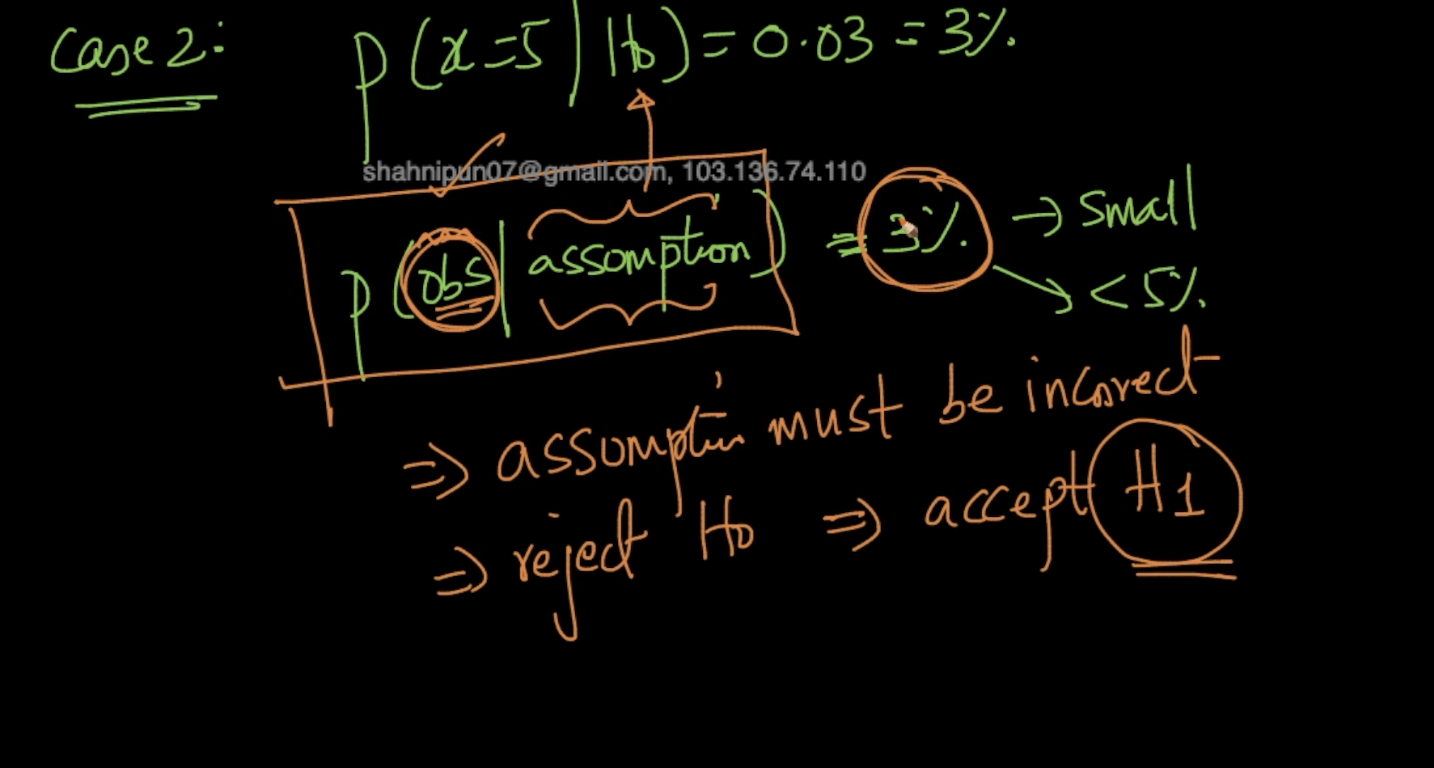 Case 2: P(x=5|H0) = 0.03 = 3%.
shahnipun07@gmail.com, 103.136.74.110
P(obs|assumption) = 3%. → small
→ < 5%.
⇒ assumption must be incorrect
⇒ reject H0 ⇒ accept H1